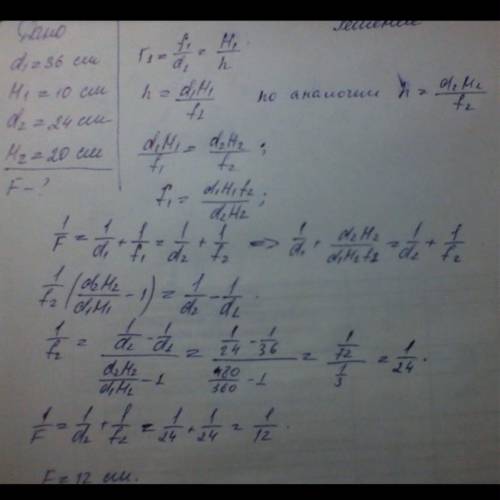 Дано
Решение
d₁ = 36 см
H₁ = 10 см
d₂ = 24 см
H₂ = 20 см
F - ?
Г₁ = f₁/d₁ = H₁/h
h = d₁H₁/f₂ по аналогии h = d₂H₂/f₂
d₁H₁/f₁ = d₂H₂/f₂ ;
f₁ = d₁H₁f₂/d₂H₂ ;
1/F = 1/d₁ + 1/f₁ = 1/d₂ + 1/f₂ => 1/d₁ + d₂H₂/d₁H₁f₂ = 1/d₂ + 1/f₂
1/f₂ (d₂H₂/d₁H₁ - 1) = 1/d₂ - 1/d₂ .
1/f₂ = (1/d₂ - 1/d₂)/(d₂H₂/d₁H₂ - 1) = (1/24 - 1/36)/(480/360 - 1) = (1/72)/(1/3) = 1/24 .
1/F = 1/d₂ + 1/f₂ = 1/24 + 1/24 = 1/12 .
F = 12 см.